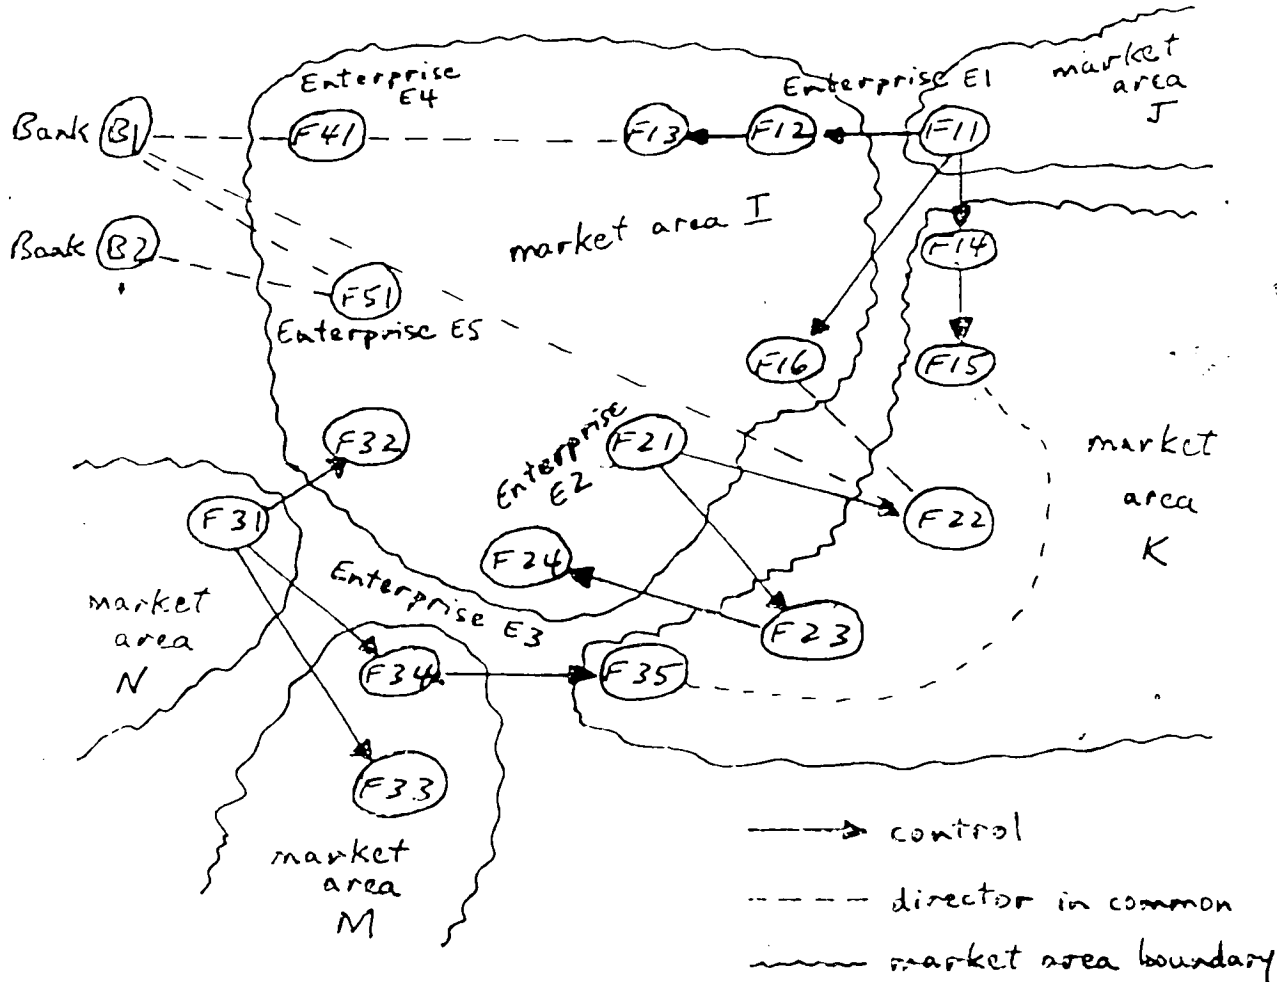 Enterprise
E4
Enterprise E1
market
area
J
Bank B1
F41
F13
F12
F11
market area I
Bank B2
F14
F51
Enterprise E5
F16
F15
F32
Enterprise
E2
F21
market
area
K
F31
F22
F24
Enterprise E3
market
area
N
F23
F34
F35
F33
market
area
M
control
director in common
market area boundary